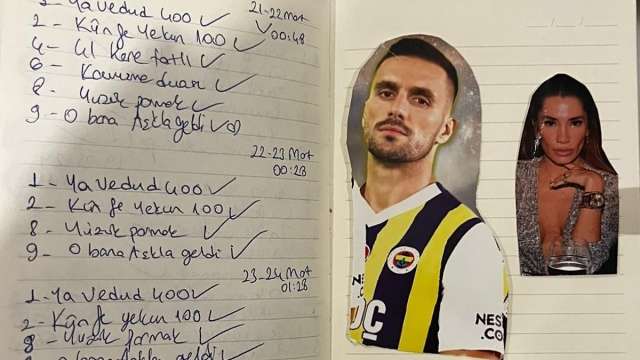 3 - Ya Vedud 400 ✓
21-22 Mat
2 - Kün fe Yekün 100 ✓
✓ 00:48
4 - 41 kere fatli ✓
6 - Kavuşma duası ✓
8 - Yüzük parmak ✓
9 - O bana Aşkla geldi ✓
22-23 Mat
00:23
1 - Ya Vedud 400 ✓
2 - Kün fe Yekün 100 ✓
8 - Yüzük parmak ✓
9 - O bana Aşkla geldi ✓
23-24 Mat
01:28
1 - Ya Vedud 400 ✓
2 - Kün fe yekün 100 ✓
8 - Yüzük parmak ✓
geldi
NES
.CO
NES
.CO